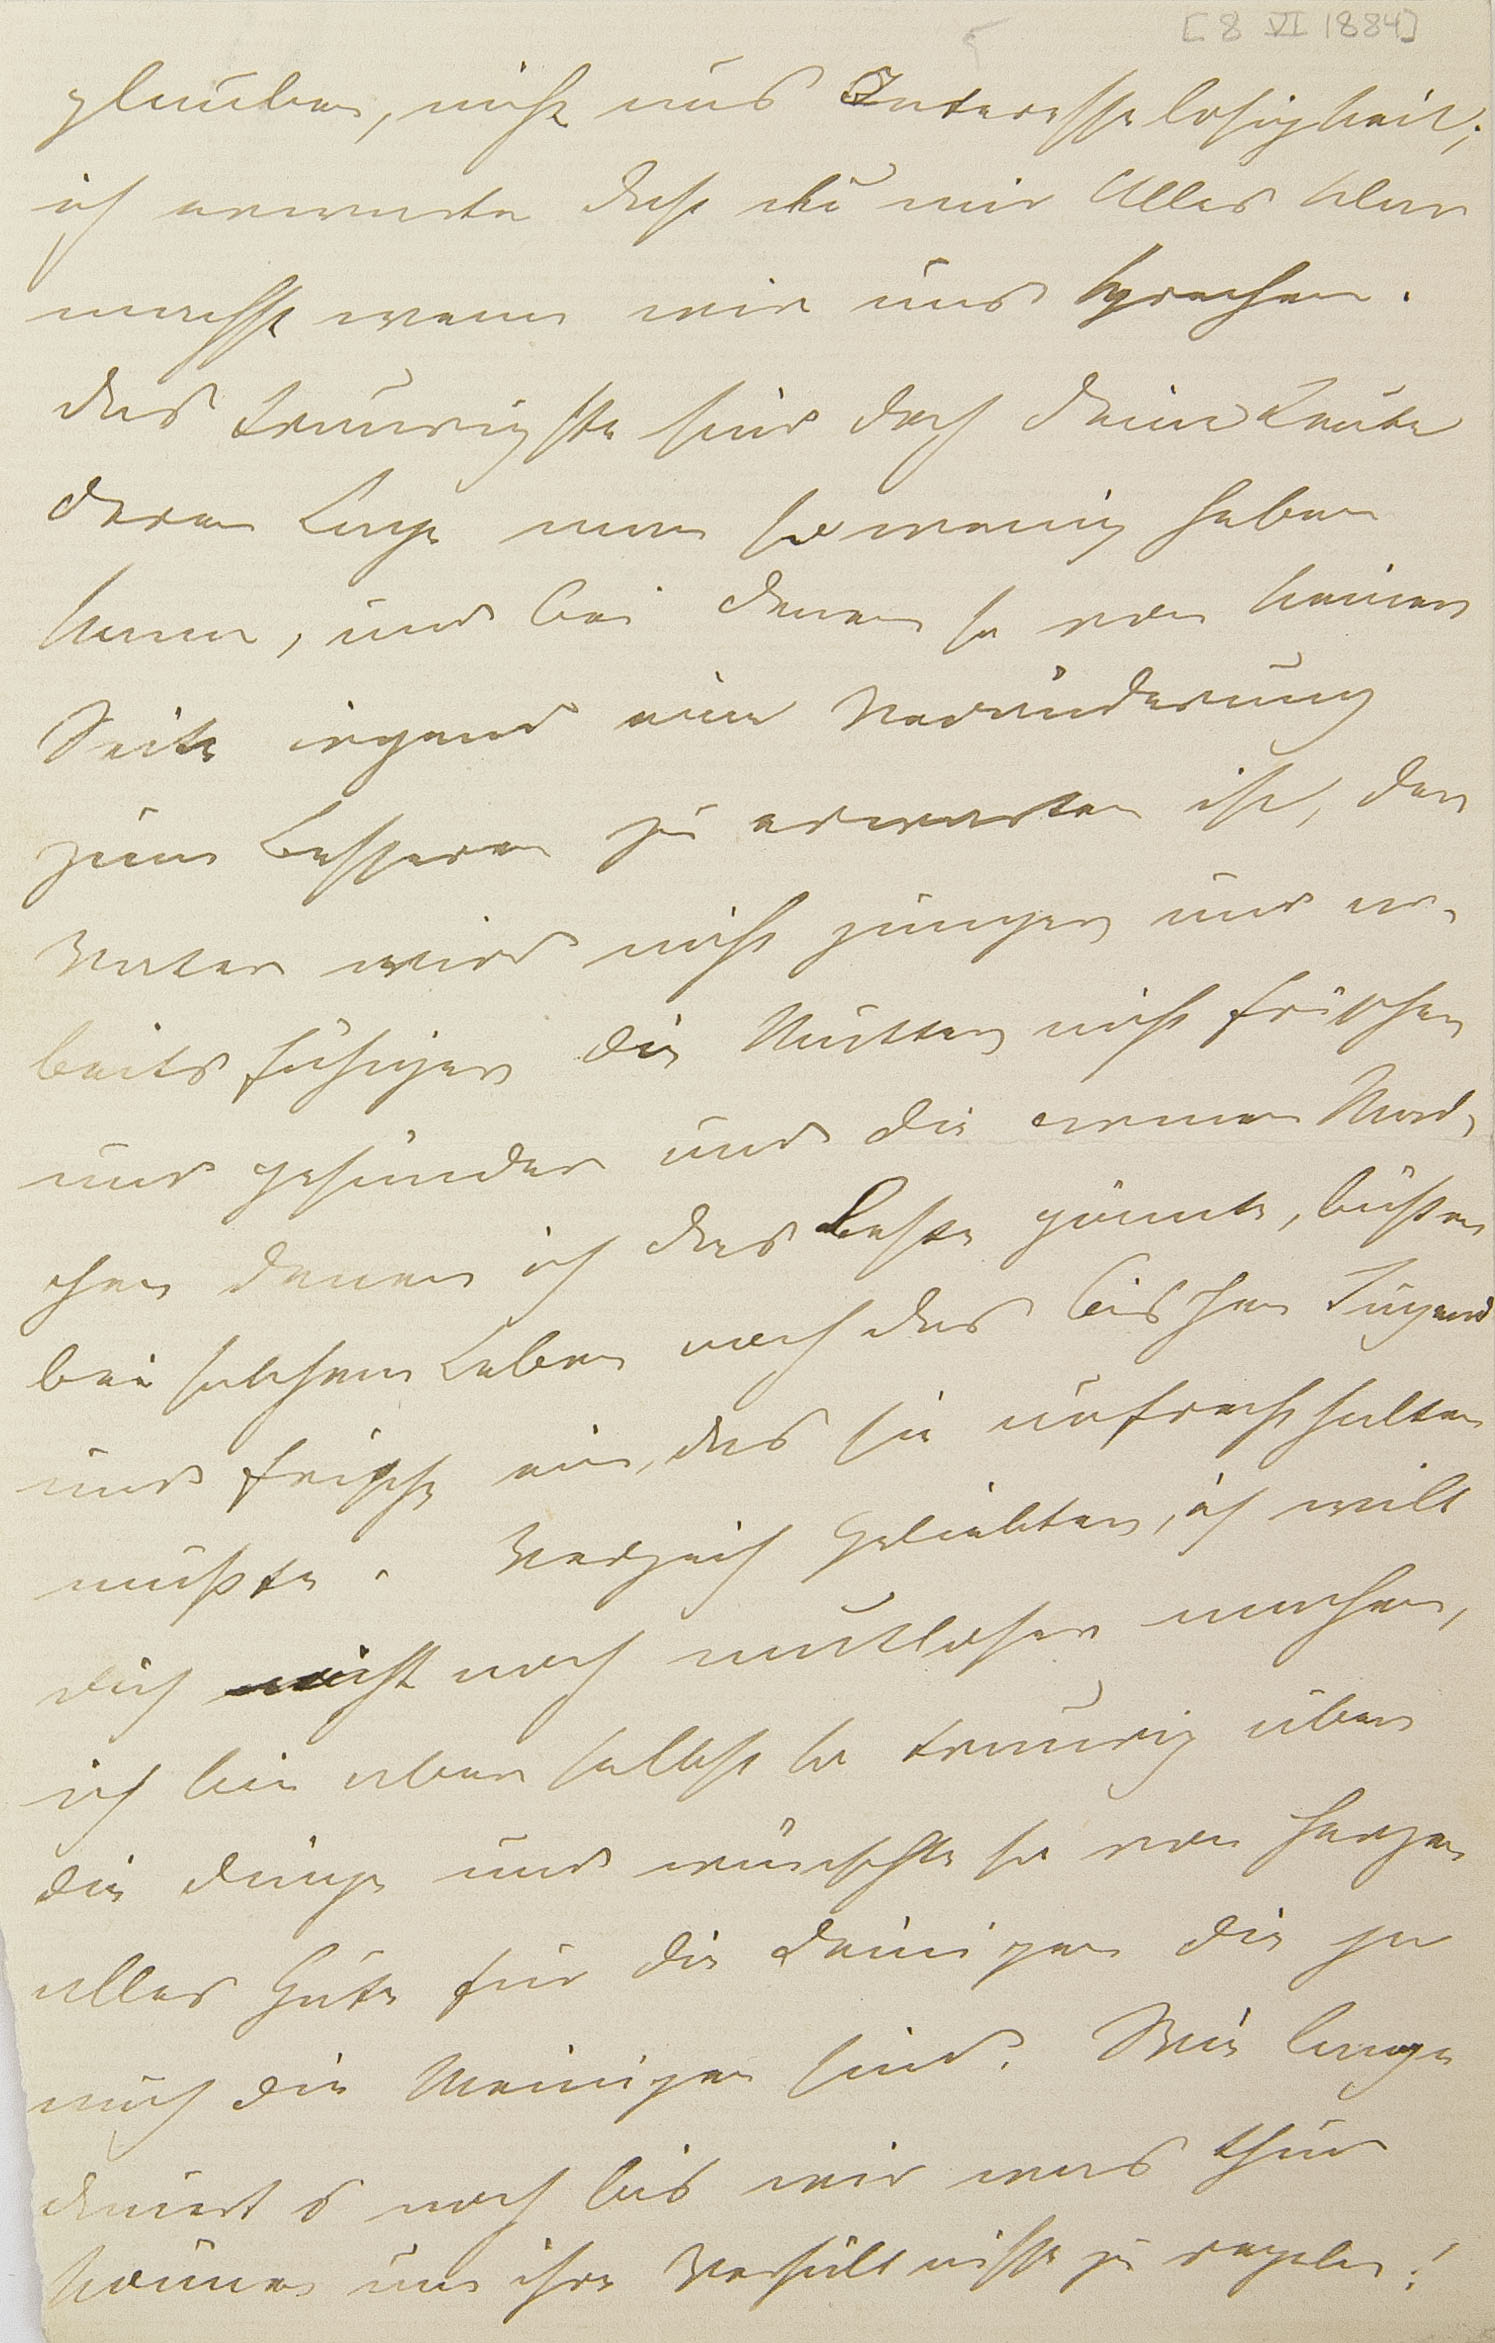 [8 VI 1884]
glauben, nicht aus Interesselosigkeit;
ich erwarte daß du mir Alles klar
machst wenn wir uns sprechen.
Das Traurigste sind doch deine Leute
deren Lage man so wenig heben
kann, und bei denen so von keiner
Seite irgend eine Veränderung
zum Besseren zu erwarten ist, der
Vater wird nicht jünger und ar-
beitsfähiger die Mutter nicht frischer
und gesünder und die armen Mäd-
chen denen ich das Beste gönnte, büßen
bei solchem Leben noch das bischen Jugend
und frische ein, das sie aufrecht halten
müßte. Verzeih Geliebter, ich will
dich nicht noch mutloser machen,
ich bin aber selbst so traurig über
die Dinge und wünschte so von Herzen
alles Gute für die Deinigen die ja
auch die Meinigen sind. Wie lange
dauert s noch bis wir was thun
können um ihre Verhältnisse zu regeln!